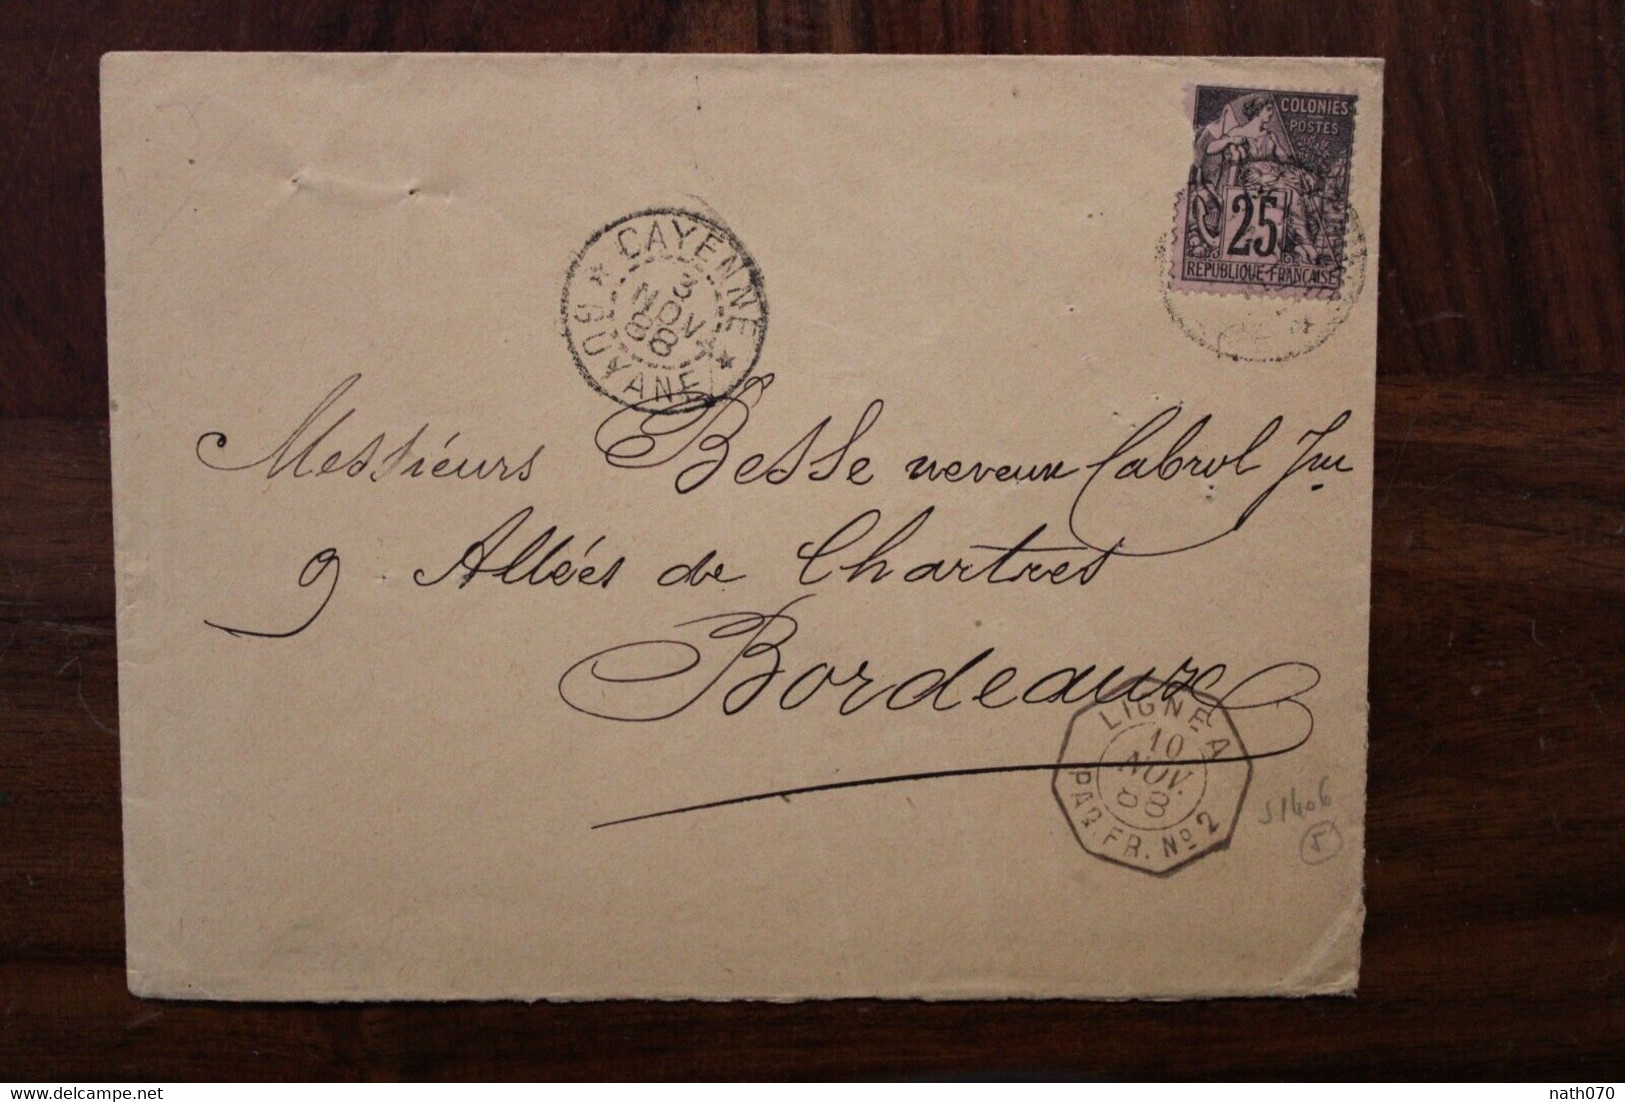 COLONIES
POSTES
25
RÉPUBLIQUE FRANÇAISE
CAYENNE
3
NOV
88
GUYANE
Messieurs Besse neveux Cabrol Jnr
9 Allées de Chartres
Bordeaux
LIGNE A
10
NOV.
88
PAQ. FR. No 2
51406
5
nath070